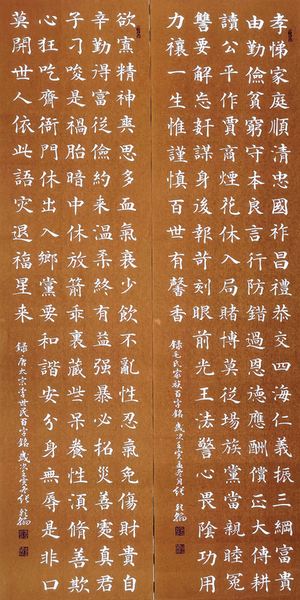 孝悌家庭順清忠國祚昌禮恭交四海仁義振三綱富貴
由勤儉貧窮守本良言行防錯過恩德應酬償正大傳耕
讀公平作賈商煙花休入局賭博莫從場族黨當親睦冤
讐要解忘奸謀身後報苛刻眼前光王法警心畏陰功用
力禳一生惟謹慎百世有馨香 錄毛氏家族百字銘 歲次壬寅孟冬月
欲寡精神爽思多血氣衰少飲不亂性忍氣免傷財貴自
辛勤得富從儉約來溫柔終有益強暴必招災善處真君
子刁唆是禍胎暗中休放箭乖裏藏些呆養性須脩善欺
心狂吃齊衙門休出入鄉黨要和諧安分身無辱是非口
莫開世人依此語災退福星來 錄唐太宗李世民百字銘 歲次壬寅冬